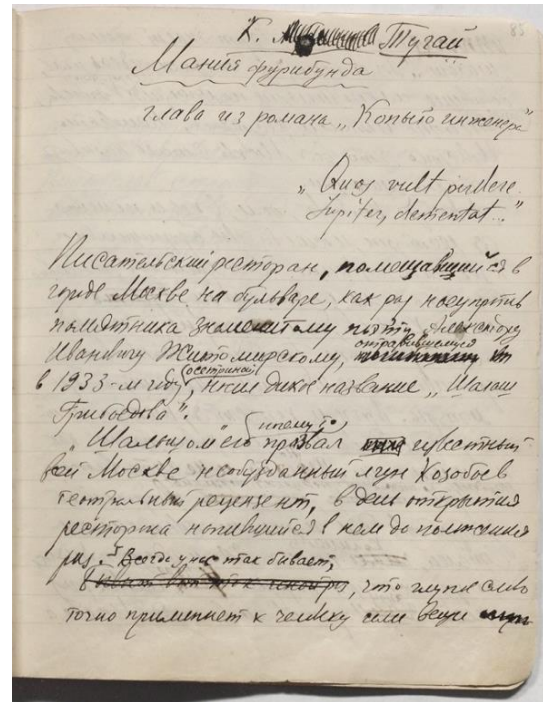 85
К. Тугай
Мания фурибунда
глава из романа „Копыто инженера"
„Quos vult perdere
Jupiter, dementat..."
Писательский ресторан, помещавшийся в
городе Москве на бульваре, как раз насупротив
памятника знаменитому поэту Александру
Ивановичу Житомирскому, отравившемуся
в 1933-м году осетриной, носил дикое название „Шалаш
Грибоедова".
„Шалашом" его почему-то прозвал известный
всей Москве необузданный лгун Козобоев
театральный рецензент, в день открытия
ресторана напившийся в нем до положения
риз. Всегда у нас так бывает,
что глупое слово
точно прилипнет к человеку или вещи